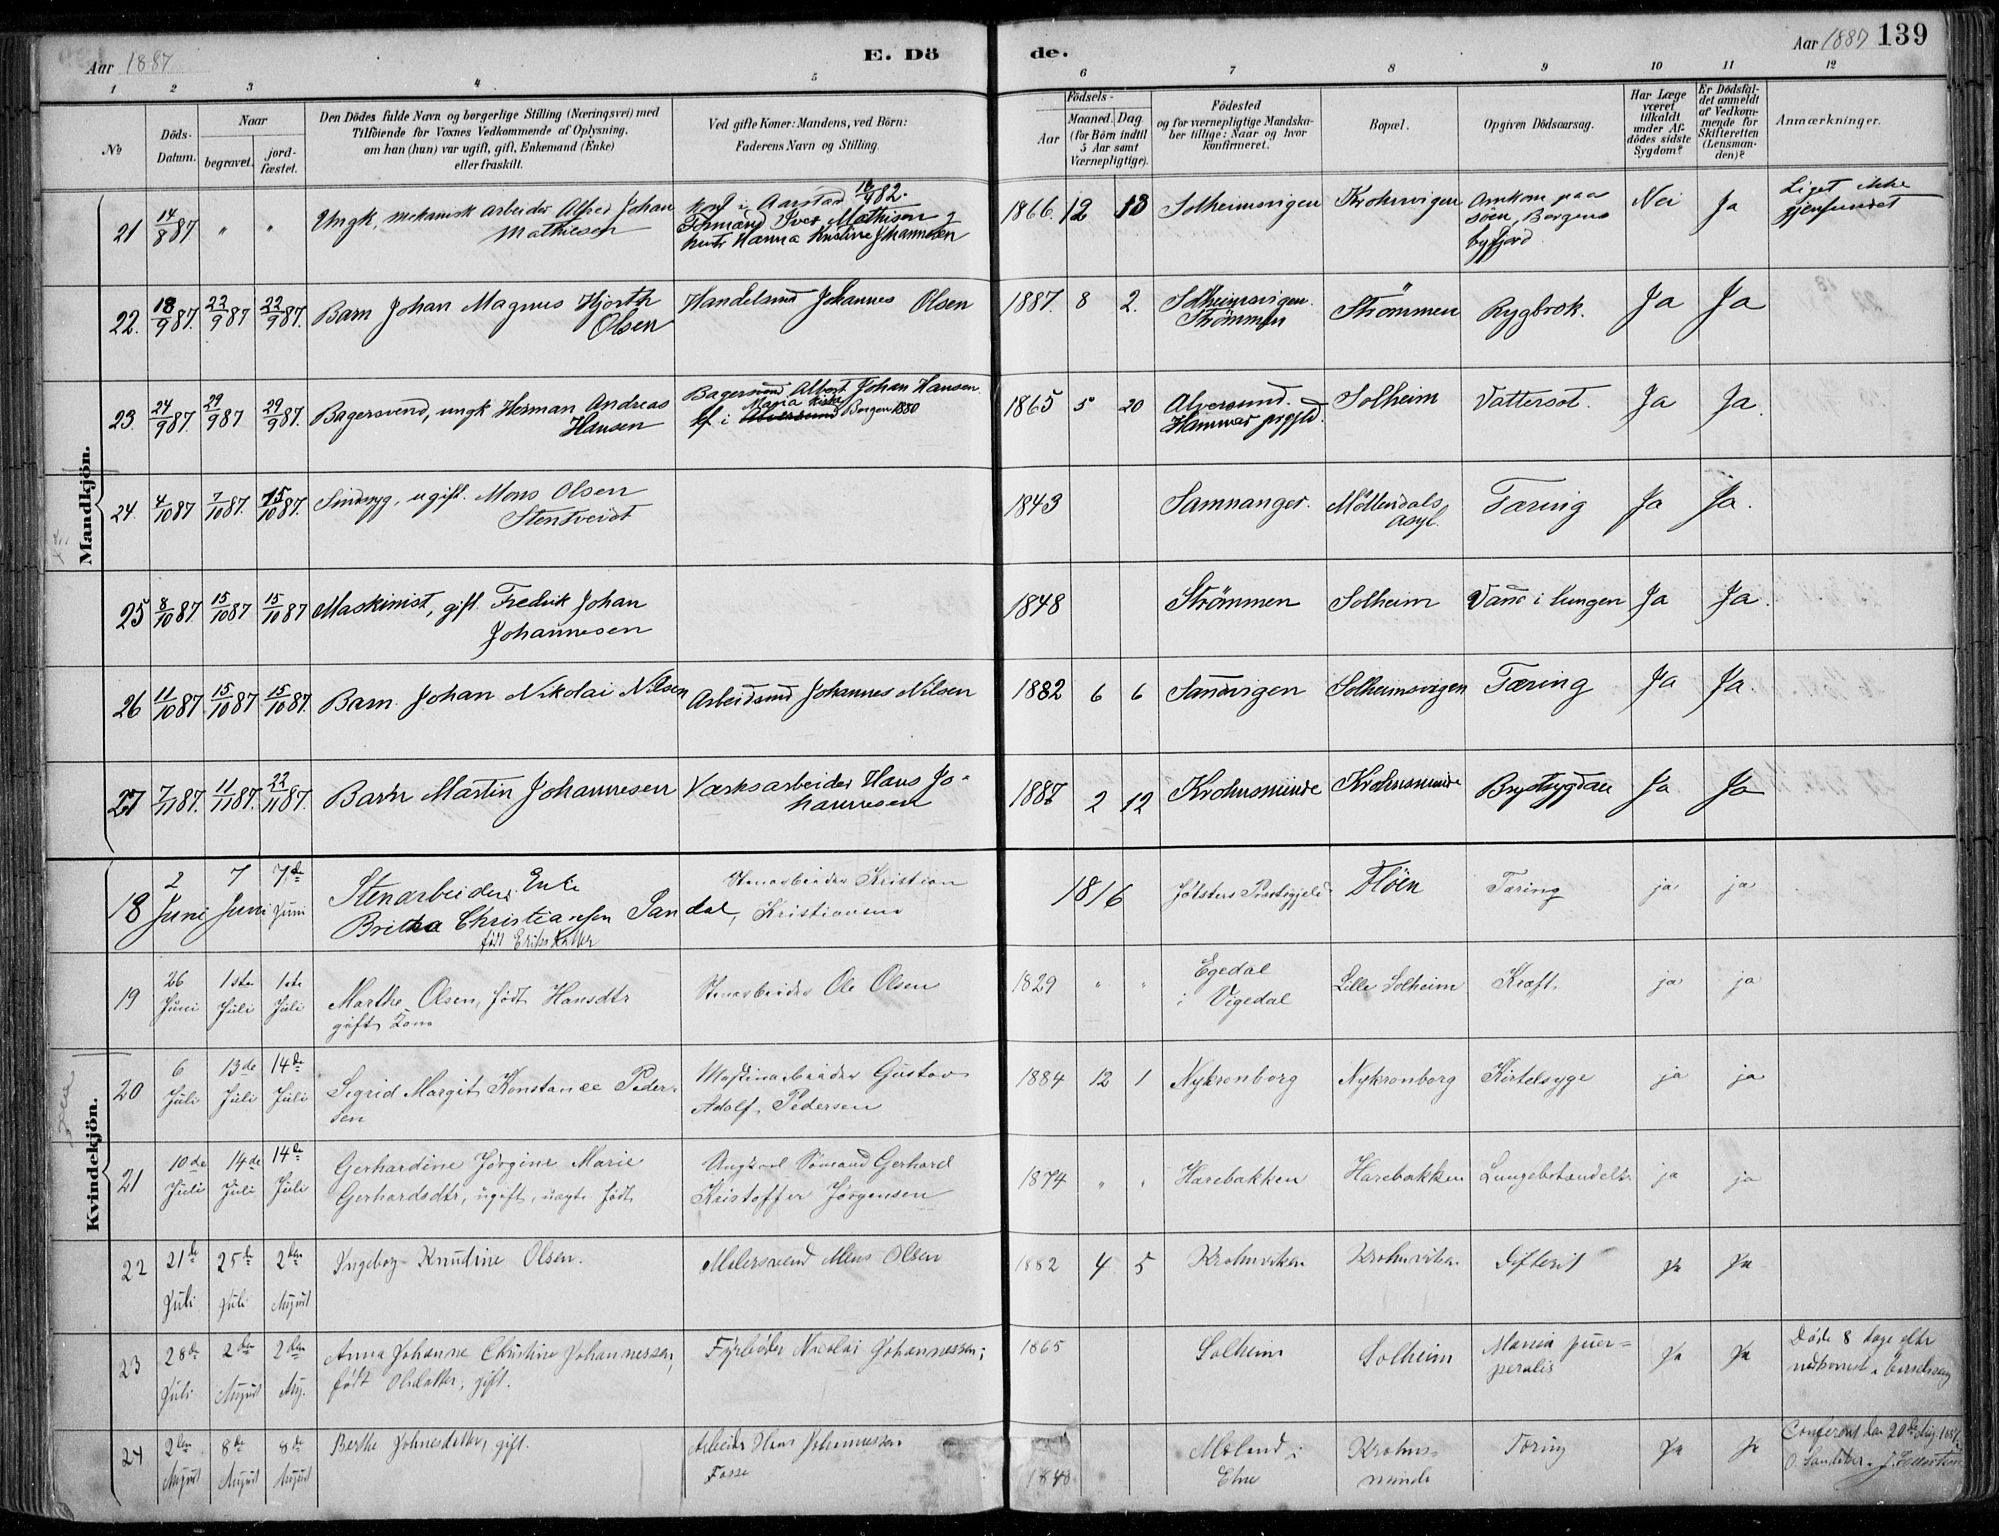 Aar 1887
E. Dö
de.
Aar 1887 139
1 2 3 4 5 6 7 8 9 10 11 12
No
Döds-
Datum.
Naar
begravet.
jord-
fæstet.
Den Dödes fulde Navn og borgerlige Stilling (Næringsvei) med
Tilföiende for Voxnes Vedkommende af Oplysning,
om han (hun) var ugift, gift, Enkemand (Enke)
eller fraskilt.
Ved gifte Koner: Mandens, ved Börn:
Faderens Navn og Stilling.
Födsels-
Aar
Maaned. Dag.
(for Börn indtil
5 Aar samt
Værnepligtige).
Födested
og for værnepligtige Mandska-
ber tillige: Naar og hvor
konfirmeret.
Bopæl.
Opgiven Dödsaarsag.
Har Læge
været
tilkaldt
under Af-
dödes sidste
Sygdom?
Er Dödsfal-
det anmeldt
af Vedkom-
mende for
Skifteretten
(Lensman-
den)?
Anmærkninger.
Mandkjön.
21 14/8 87 " " Ungk, mekanisk Arbeider Alfred Johan
Mathiesen
Konf i Aarstad 82.
Formand Iver Mathisen
Hanna Kristine Johannesen
1866. 12 13 Solheimsvigen Krohnvigen Omkom paa
söen, Bergens
byfjord.
Nei Ja Liget ikke
gjenfundet
22. 18/9 87. 22/9 87 22/9 87. Barn Johan Magnus Hjorth
Olsen
Handelsmd Johannes Olsen 1887. 8 2. Solheimsvigen.
Strömmen
Strömmen Rygbrok. Ja Ja
23. 24/9 87. 29/9 87 29/9 87. Bagersvend, ungk Herman Andreas
Hansen
Bagersvend Albert Johan Hansen
Maria Kirke
kf i Alversund Bergen 1880
1865 5 20 Alversund.
Hammer prgjld.
Solheim Vattersot. Ja Ja.
24. 4/10 87 7/10 87. 15/10 87. Sindssyg, ugift. Mons Olsen
Stentveidt
1843 Samnanger. Möllendals
Asyl.
Tæring Ja Ja.
25 8/10 87. 15/10 87 15/10 87 Maskinist, gift. Fredrik Johan
Johannesen
1848 Strömmen Solheim Vand i lungen Ja Ja.
26 11/10 87 15/10 87 15/10 87. Barn Johan Nikolai Nilsen Arbeidsmd Johannes Nilsen 1882 6 6 Sandvigen Solheimsvigen Tæring Ja Ja.
27 7/11 87. 11/11 87. 22/11 87. Barn Martin Johannesen Værksarbeider Hans Jo-
hannesen
1887 2 12 Krohnsminde Krohnsminde Brystsygdom Ja Ja
Kvindekjön.
18 2 Juni 7 Juni 7de Juni Stenarbeiders Enke
Britha Christiansen Sandal,
født Eriksdatter
Stenarbeider Kristian
Kristiansen
1816 Jølsters Præstegjeld Flöen Tæring ja ja
19 26 Juni 1ste Juli 1ste Juli Marthe Olsen, født Hansdtr
gift Kone
Stenarbeider Ole Olsen 1829 " " Egedal
i Vigedal
Lille Solheim Kræft. ja ja
20 6 Juli 13de Juli 14de Juli Sigrid Margit Konstance Peder-
sen
Maskinarbeider Gustav
Adolf Pedersen
1884 12 1 Nykronborg Nykronborg Kirtelsyge ja ja
21 10de Juli 14de Juli 14de Juli Gerhardine Jørgine Marie
Gerhardsdtr, ugift, uægte født
Ungkarl Sømand Gerhard
Kristoffer Jørgensen
1874 " " Harebakken Harebakken Lungebetændelse ja ja
22 21de Juli 25de Juli 2den August Ingeborg Knudine Olsen. Malersvend Mons Olsen 1882 4 5 Krohnviken Krohnviken Difterit Ja Ja
23 28de Juli 2den August 2den Aug. Anna Johanne Christine Johannessen,
født Olsdatter, gift.
Fyrböder Nicolai Johannessen; 1865 Solheim Solheim Mania puer-
peralis
Ja Ja Døde 8 dage efter
nedkomst i Barselseng
24 2den August 8de August 8de August Berthe Johnesdatter, gift. Arbeider Hans Johannessen
Fosse
1840 Moland i
Etne
Krohns-
minde
Tæring Ja Ja Confereret den 20de Aug. 1887